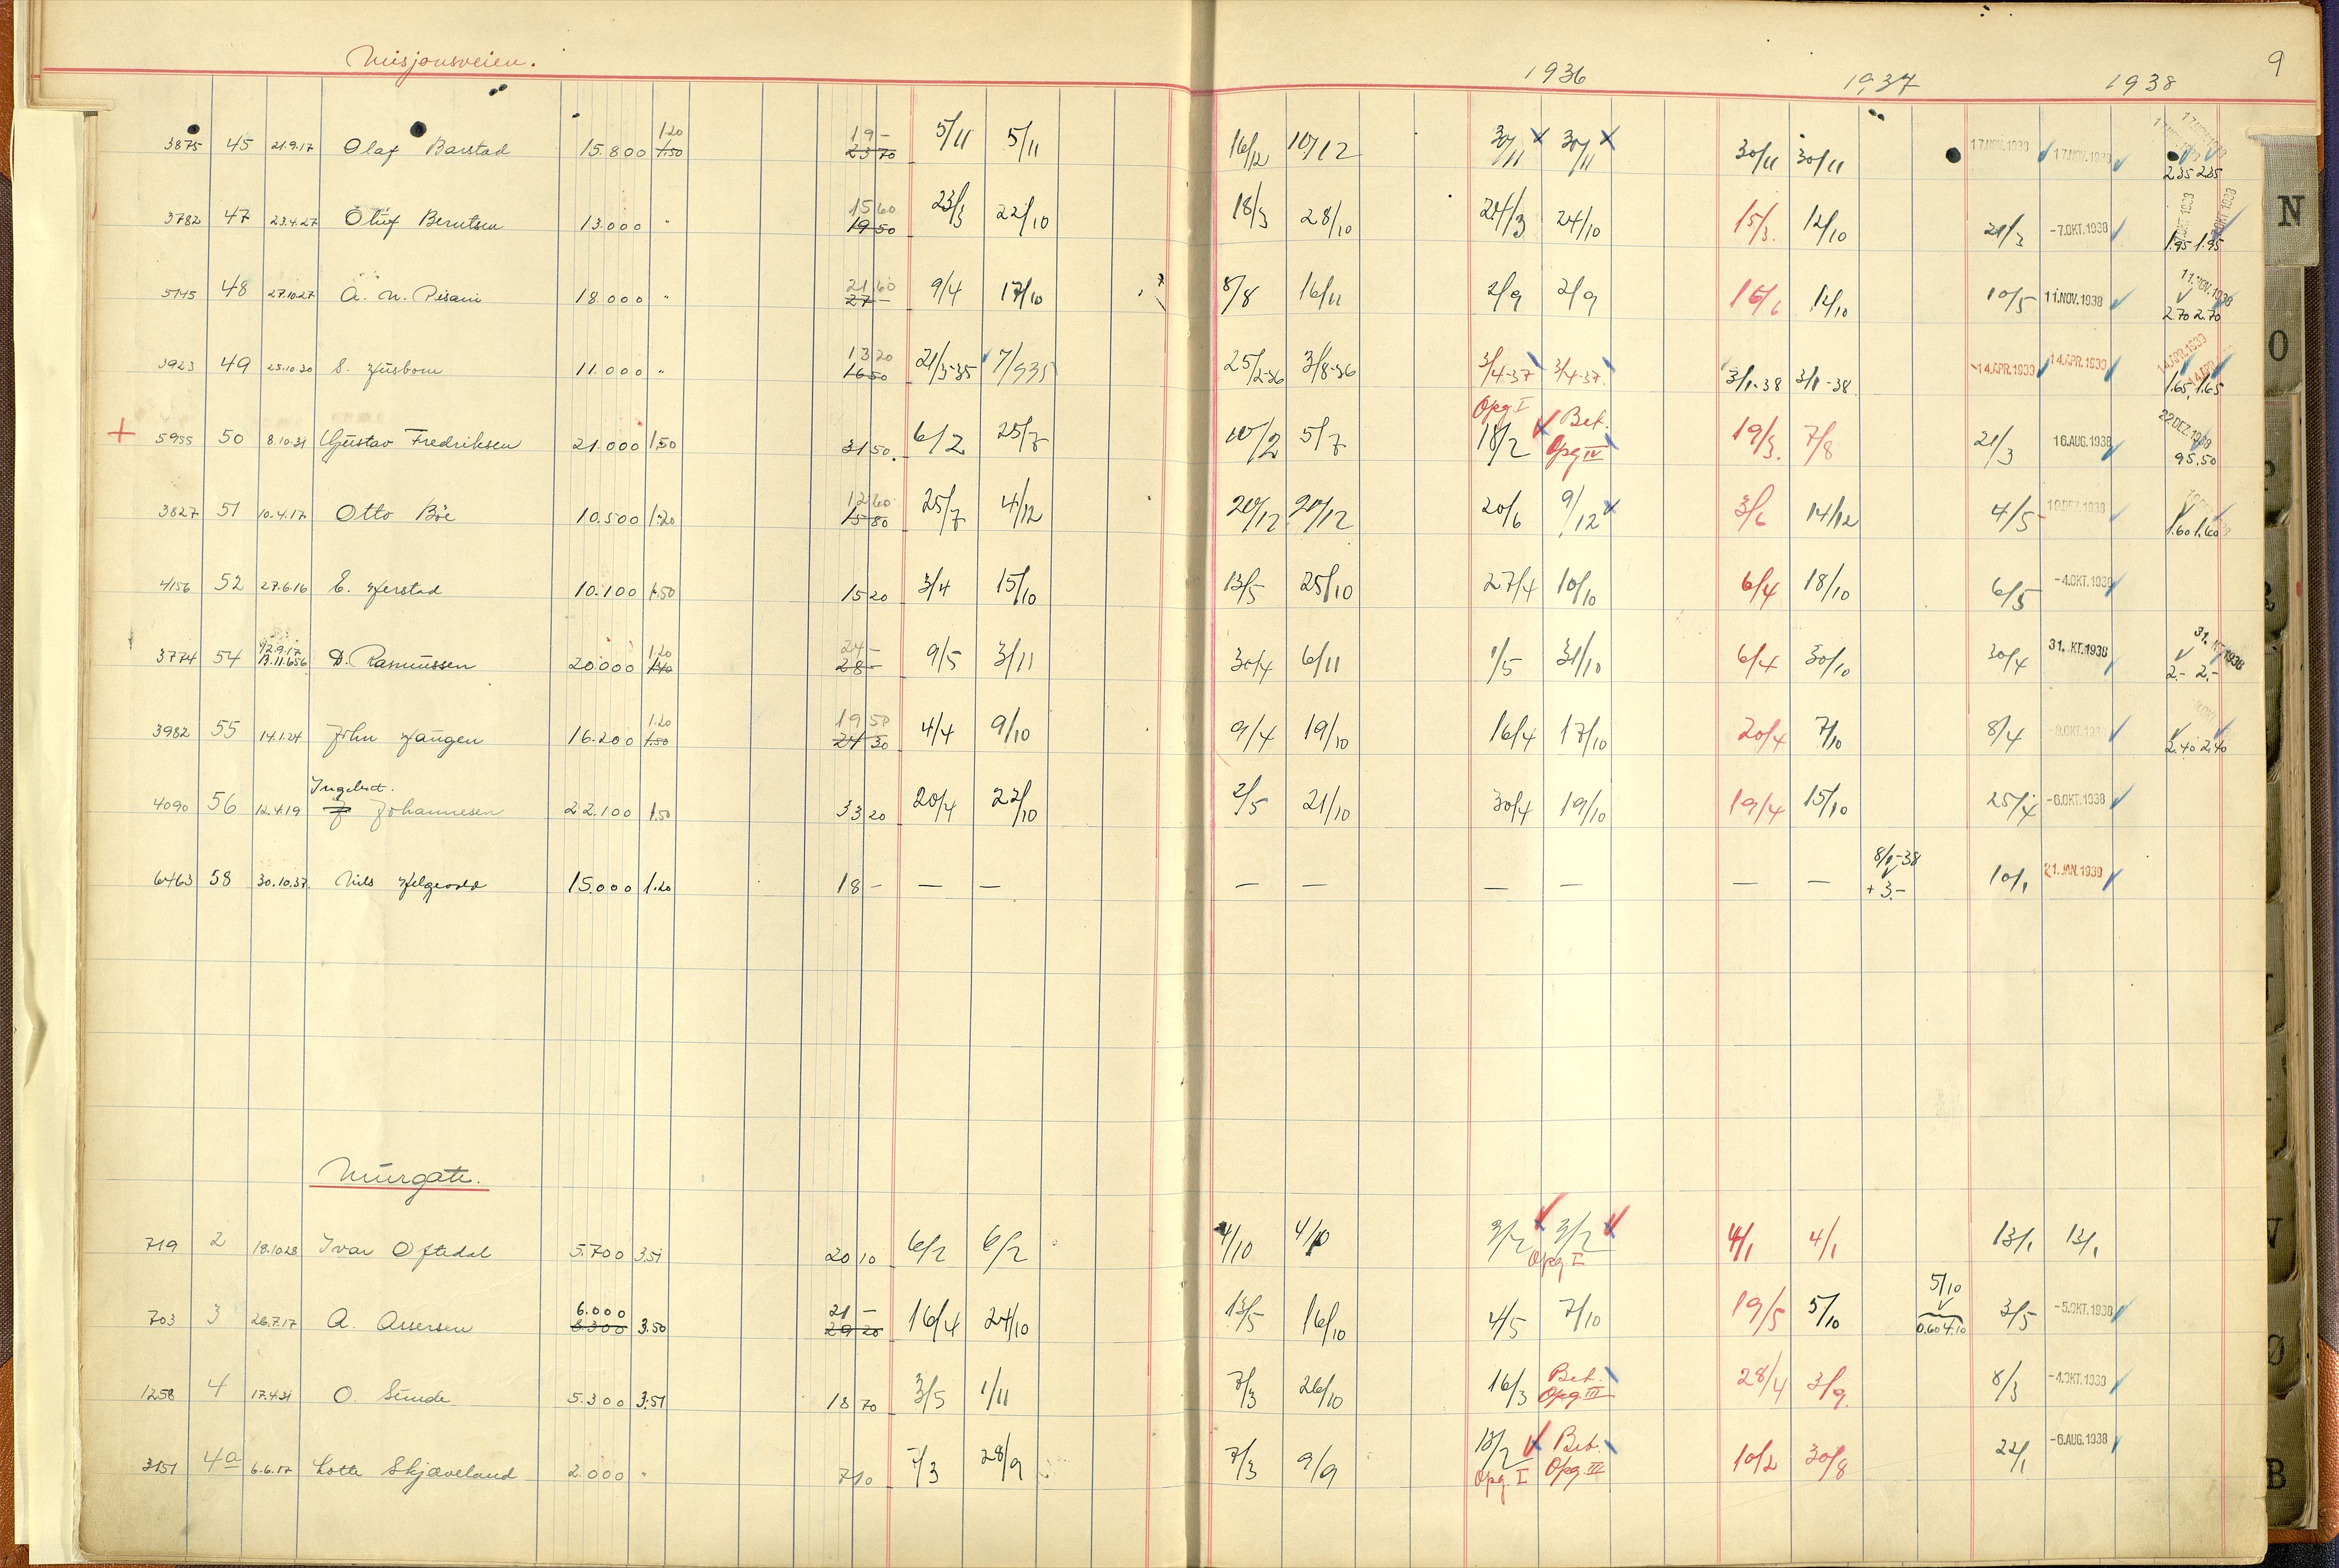 Misjonsveien.
1936 1937 1938 9
3875 45 21.9.17 Olaf Barstad 15.800 1.20 1.50 19 - 23 70 5/11 5/11 16/12 10/12 30/11 x 30/11 x 30/11 30/11 17.NOV.1938 17.NOV.1938 2.35 2.35
3782 47 23.4.27 Oluf Berntsen 13.000 " 15 60 19 50 23/3 22/10 18/3 28/10 24/3 24/10 15/3. 12/10 21/3 -7.OKT.1938 1.95 1.95
5145 48 27.10.27 A. N. Pisani 18.000 " 21 60 27 - 9/4 17/10 8/8 16/11 2/9 2/9 16/6 12/10 10/5 11.NOV.1938 11.NOV.1938 2.70 2.70
3923 49 25.10.30 S. Husbom 11.000 " 13 20 16 50 21/3-35 7/9 35 25/2-36 31/8-36 3/4-37 3/4-37. 3/1-38 3/1-38 14.APR.1939 14.APR.1939 14.APR.1939 14.APR.1939 1.65 1.65
+ 5955 50 8.10.31 Gustav Fredriksen 21.000 1.50 31 50. 6/2 25/7 10/2 5/7 Opg I 18/2 Bet. Opg IV 19/3. 7/8 21/3 16.AUG.1938 22.DEZ.1938 95.50
3827 51 10.4.17 Otto Böe 10.500 1.20 12 60 15 80 25/7 4/12 20/12 20/12 20/6 9/12 x 3/6 14/12 4/5 19.DEZ.1938 1.60 1.60
4156 52 27.6.16 E. Herstad 10.100 1.50 15 20 3/4 15/10 13/5 25/10 27/4 10/10 6/4 18/10 6/5 -4.OKT.1938
3774 54 12.9.17 13.11.656 D. Rasmussen 20.000 1.20 1.40 24 - 28 - 9/5 3/11 30/4 6/11 1/5 31/10 6/4 30/10 30/4 31. KT.1938 31. KT.1938 2.- 2.-
3982 55 14.1.24 John Haugen 16.200 1.20 1.50 19 50 24 30 4/4 9/10 9/4 19/10 16/4 17/10 20/4 7/10 8/4 -8.OKT.1938 2.40 2.40
Ingebret.
4090 56 12.4.19 J Johannesen 22.100 1.50 33 20 20/4 22/10 2/5 21/10 30/4 19/10 19/4 15/10 25/4 -6.OKT.1938
6463 58 30.10.37. Nils Helgevold 15.000 1.20 18 - — — — — — — — — 8/1-38 + 3.- 10/1 21.JAN.1939
Murgate.
719 2 18.10.28 Ivar Oftedal 5.700 3.51 20 10 6/2 6/2 4/10 4/10 3/2 3/2 Opg I 4/1 4/1 13/1 13/1
703 3 26.7.17 A. Assersen 6.000 8.300 3.50 21 - 29 20 16/4 24/10 13/5 16/10 4/5 7/10 19/5 5/10 5/10 0.60 4.10 3/5 -5.OKT.1938
1258 4 17.4.31 O. Sunde 5.300 3.51 18 70 3/5 1/11 7/3 26/10 16/3 Bet. Opg III 28/4 3/9. 8/3 -4.OKT.1938
3151 4a 6.6.17 Lotte Skjæveland 2.000 " 7 10 7/3 28/9 7/3 9/9 18/2 Opg. I Bet. Opg. III 10/2 30/8 22/1 -6.AUG.1938
N
O
Ø
B